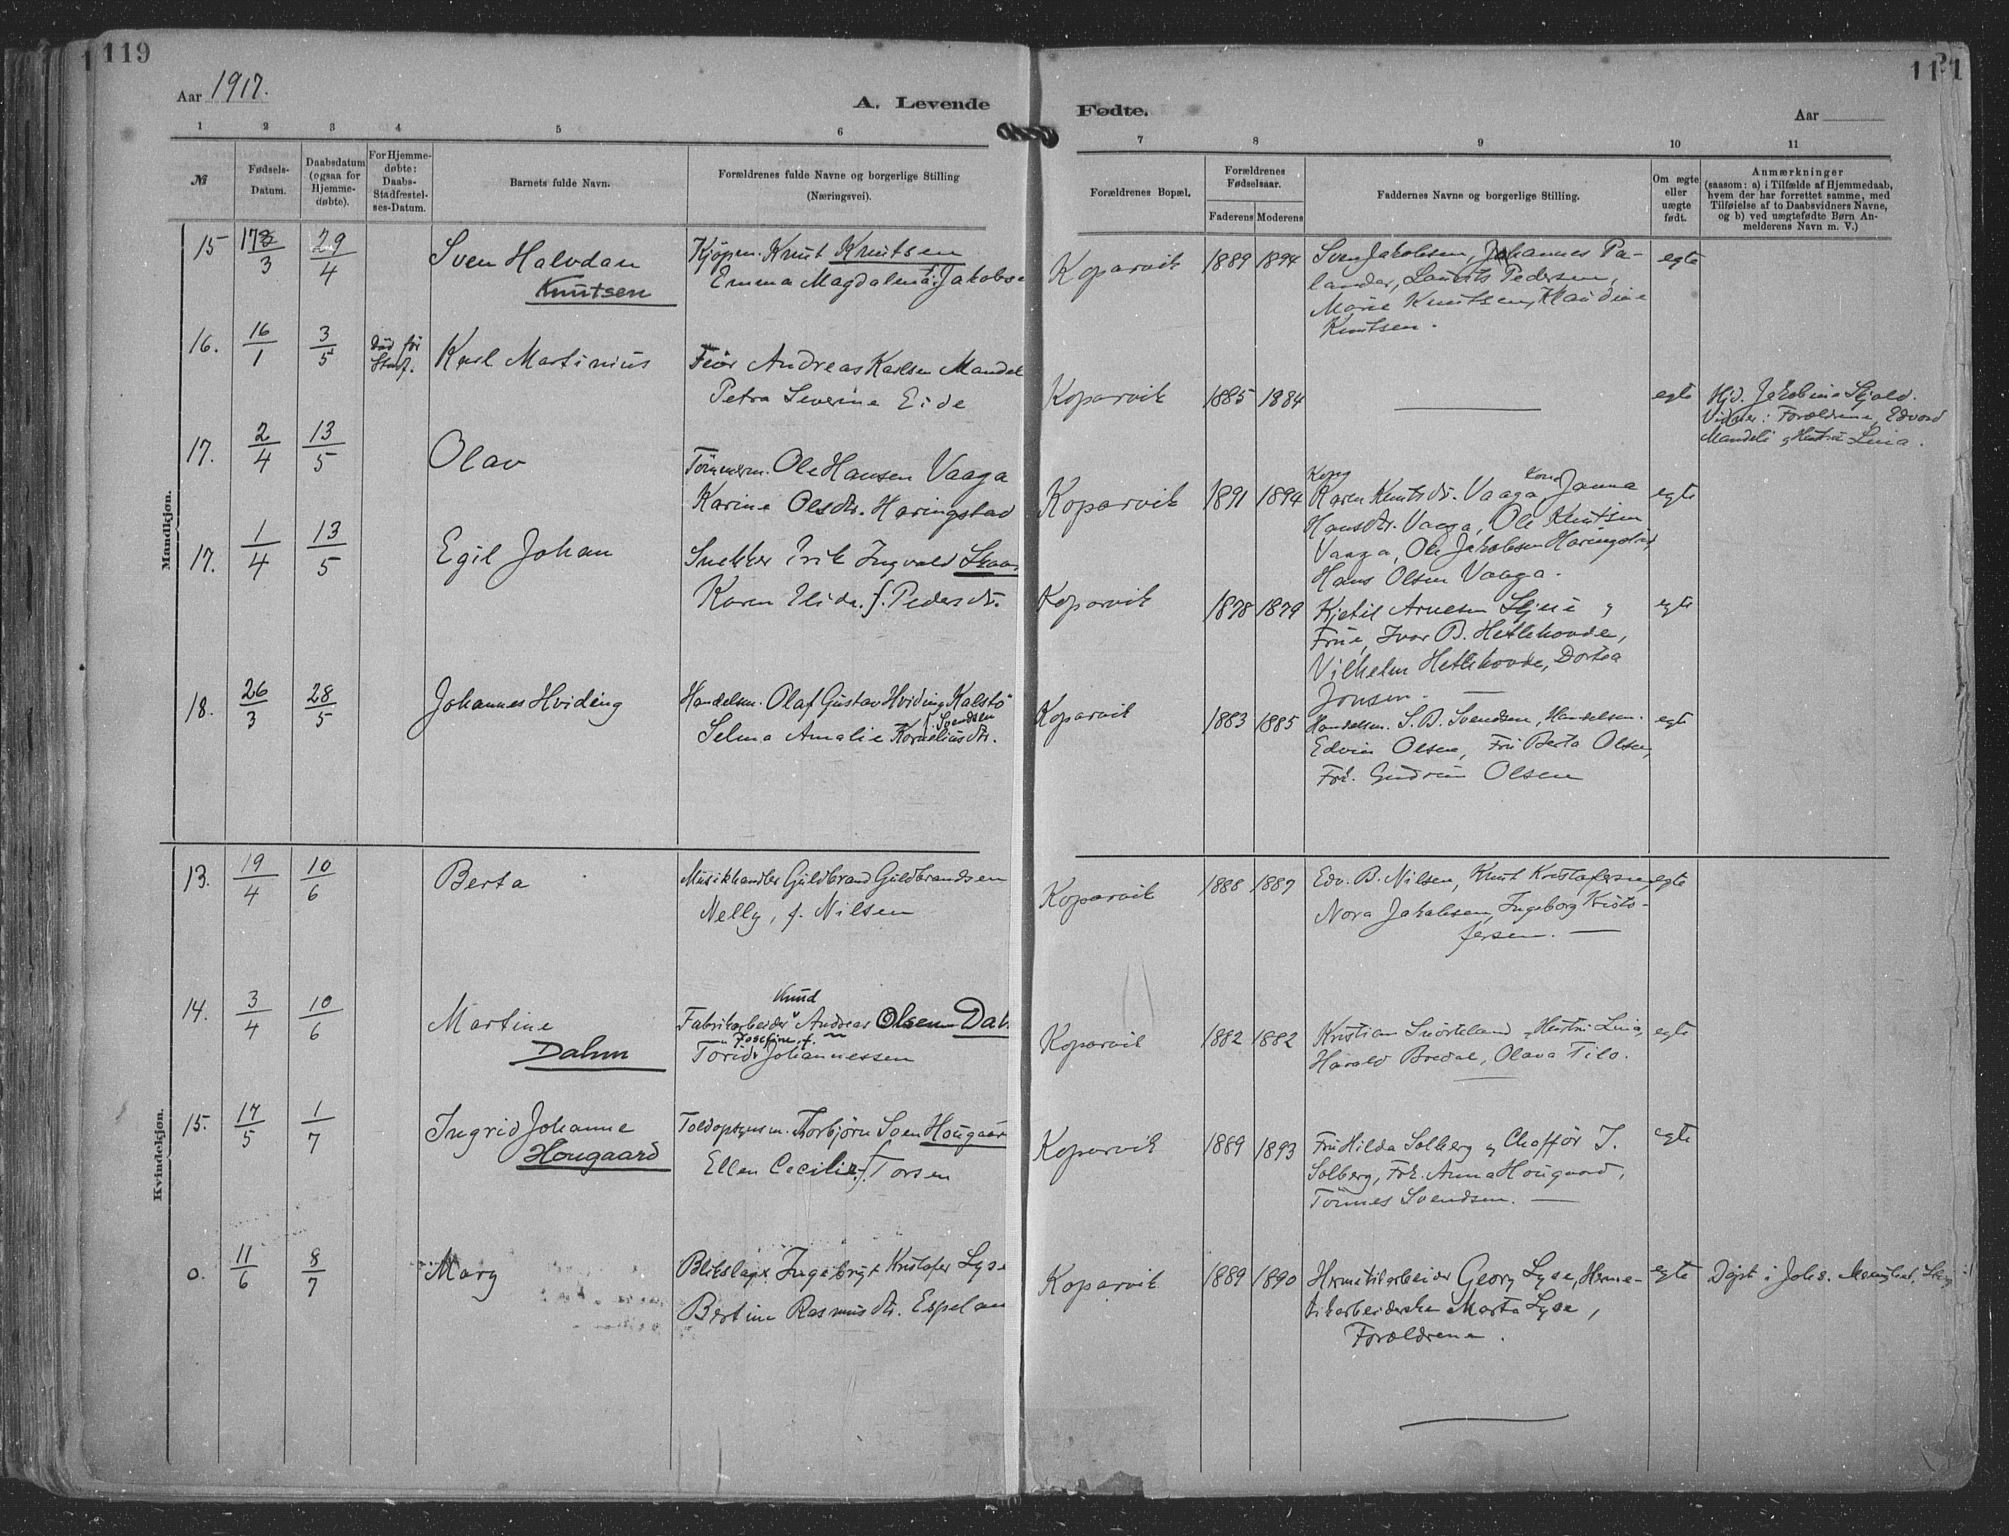 119
Aar 1917.
A. Levende
Fødte.
Aar
1 2 3 4 5 6
7 8 9 10 11
№
Fødsels-Datum.
Daabsdatum (ogsaa for Hjemmedøbte).
For Hjemmedøbte: Daabs-Stadfæstelses-Datum.
Barnets fulde Navn.
Forældrenes fulde Navne og borgerlige Stilling (Næringsvei).
Forældrenes Bopæl.
Forældrenes Fødselsaar.
Faderens Moderens
Faddernes Navne og borgerlige Stilling.
Om ægte eller uægte født.
Anmærkninger
(saasom: a) i Tilfælde af Hjemmedaab, hvem der har forrettet samme, med Tilføielse af to Daabsvidners Navne, og b) ved uægtefødte Børn Anmelderens Navn m. V.)
Mandkjøn.
15 3 29/4 Sven Halvdan Knutsen
Kjøpm. Knut Knutsen
Emma Magdalena f. Jakobse
Koparvik 1889 1894
Sven Jakobsen, Johannes Pa-
lander, Laurits Pedersen,
Marie Knutsen, Klaudine
Knutsen.
egte
16. 16/1 3/5 død før Staf. Karl Martinius
Feier Andreas Karlsen Mandel
Petra Severine Eide
Koparvik 1885 1884 —
egte
Hjd. Jakobine Skjold.
Vidner: Forældrene, Edvard
Mandel og Hustru Lina.
17. 2/4 13/5 Olav
Tømmerm. Ole Hansen Vaaga
Karine Olsdtr. Haringstad
Koparvik 1891 1894
Kong Kone
Karen Knutsdtr. Vaaga, Janna
Hansdtr. Vaaga, Ole Knutsen
Vaaga, Ole Jakobsen Haringstad,
Hans Olsen Vaaga.
egte
17. 1/4 13/5 Egil Johan
Snekker Erik Ingvald Skaar
Karen Elida f. Pedersdtr.
Koparvik 1878 1879
Kjetil Arnesen Skeie og
Frue, Ivar B. Hetlehovde,
Vilhelm Hetlehovde, Dortea
Jonsen. —
egte
18. 26/3 28/5 Johannes Hviding
Handelsm. Olaf Gustav Hviding Kalstø
Selma Amalie Korneliusdtr. f. Svendsen
Koparvik 1883 1885
Handelsm. S. B. Svendsen, Handelsm.
Edvin Olsen, Fru Berta Olsen,
Frk. Gudrun Olsen
egte
Kvindekjøn.
13. 19/4 10/6 Berta
Musikhandler Guldbrand Guldbrandsen
Nelly, f. Nilsen
Koparvik 1888 1887
Edv. B. Nilsen, Knut Kristofersen,
Nora Jakobsen, Ingeborg Kristo-
fersen. —
egte
14. 3/4 10/6 Martine Dahm
Knud
Fabrikarbeider Andreas Olsen Dah
Josefine f.
Torid Johannessen
Koparvik 1882 1882
Kristian Snørteland og Hustru Lina,
Harald Bredal, Olava Tilo.
egte
15. 17/5 1/7 Ingrid Johanne Hougaard
Toldopsynsm. Torbjørn Sven Hougaar
Ellen Cecilie f. Torsen
Koparvik 1889 1893
Fru Hilda Solberg og Chaffør I.
Solberg, Frk. Anna Hougaard,
Tønnes Svendsen. —
egte
0. 11/6 8/7 Mary
Blikslag. Ingebrigt Kristofer Lyse
Bertine Rasmusdtr. Espelan
Koparvik 1889 1890
Hermetikarbeider Georg Lyse, Herme-
tikarbeiderske Marta Lyse,
Forældrene.
egte
Døpt i Johs. Menighet,